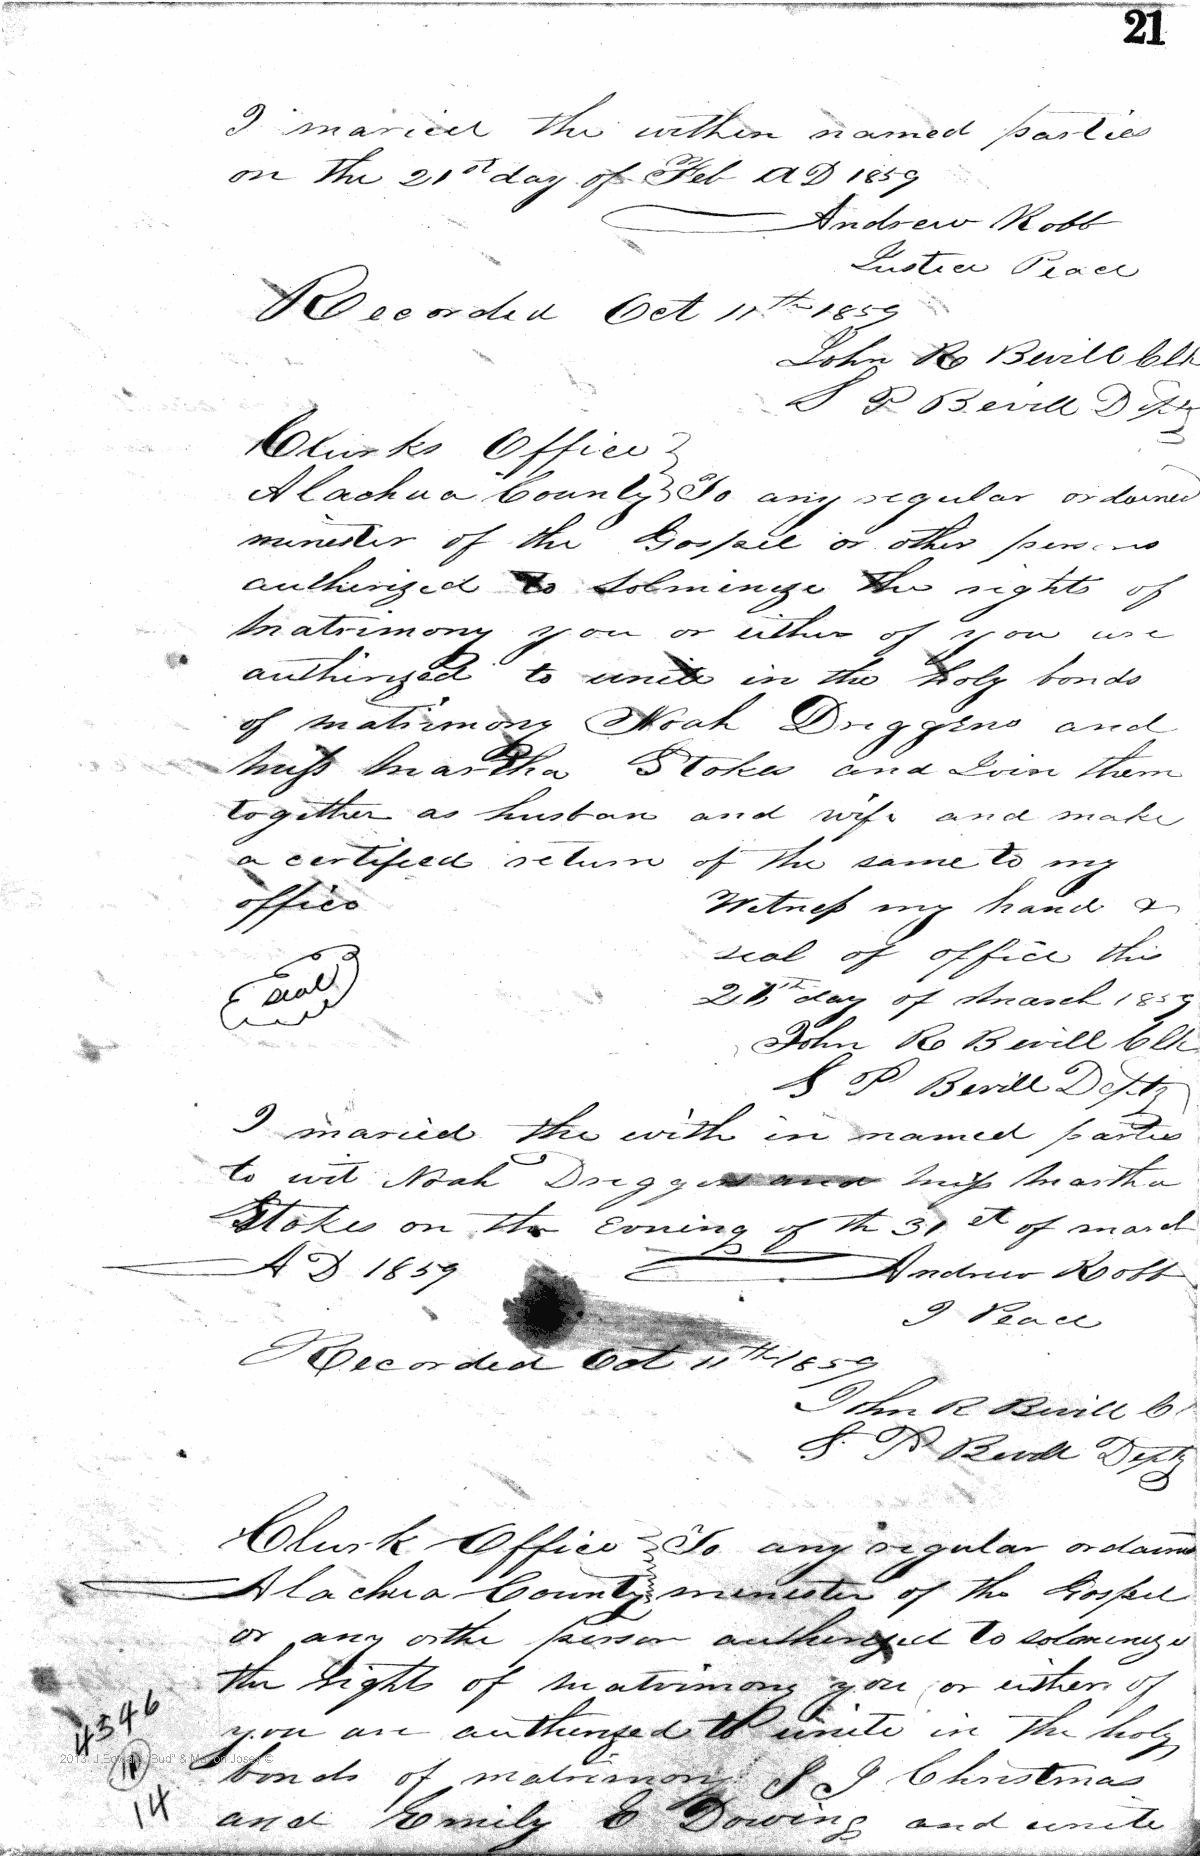 21
I maried the within named parties
on the 21st day of Feb AD 1859
Andrew Robb
Justice Peace
Recorded Oct 11th 1859
John R Bevill Clk
S P Bevill Dpty
Clurks Office
Alachua County To any regular ordained
minester of the Gospel or other persons
autherized to solminize the rights of
Matrimony you or either of you are
authirized to unite in the holy bonds
of matrimony Noah Driggens and
Miss Martha Stokes and Join them
together as husban and wife and make
a certified return of the same to my
office Witness my hand &
seal of office this
seal day of March 1859
John R Bevill Clk
S P Bevill Depty
I maried the with in named parties
to wit Noah Driggers and Miss Martha
Stokes on the Evening of th 31 et of march
AD 1859 Andrew Robb
J Peace
Recorded Oct 11th 1859
John R Bevill Cl
S. P Bevill Depty
Clurk Office To any regular ordained
Alachua County minester of the Gospel
or any orthe person autherized to solminize
the rights of Matrimony you or either of
you are autherized to unite in the holy
bonds of matrimony J J Christmas
and Emily E Dowing and unite
4346
14
2013 J.Edward "Bud" & Marion Josey ©